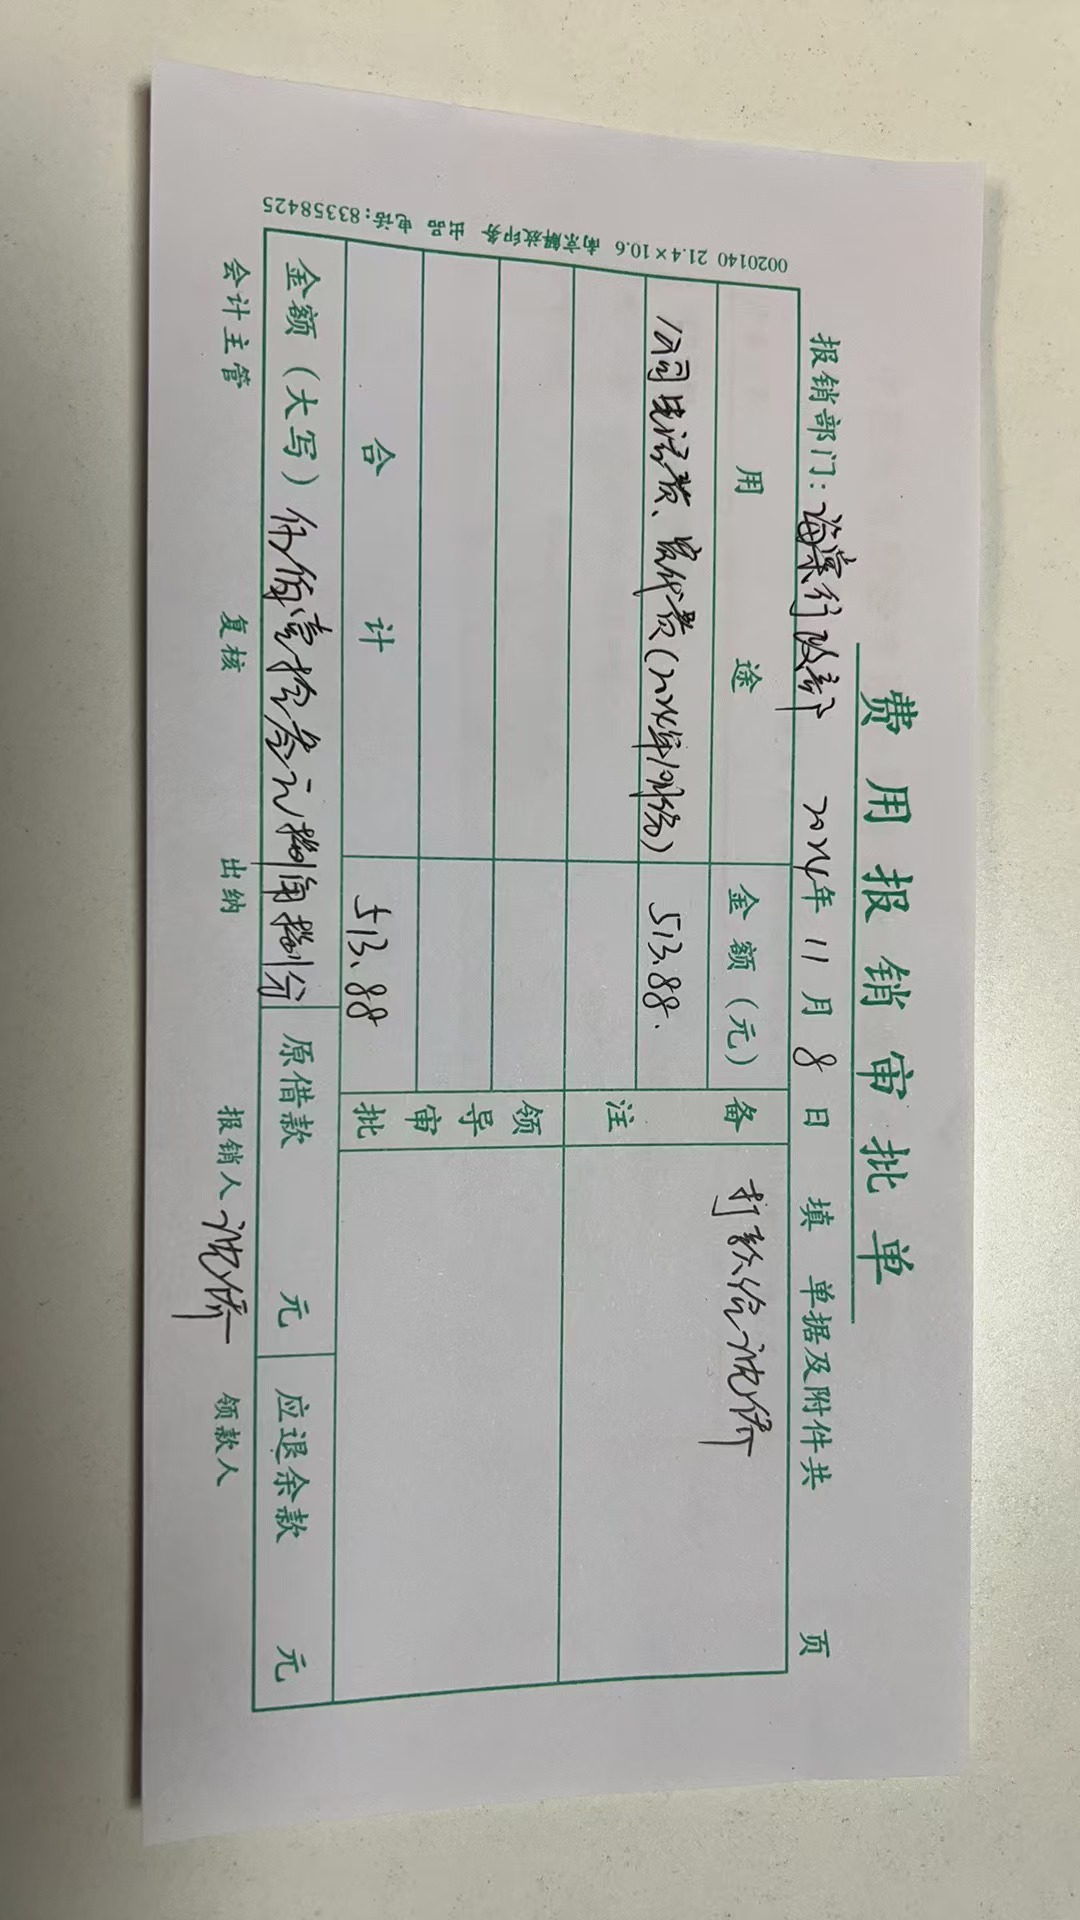 费用报销审批单
报销部门：海棠行政部 2024年11月8日填 单据及附件共 页
用途 金额(元) 备注 打款给沈侨
公司电话费、宽带费(2024年10月份) 513.88.
领导审批
合计 513.88
金额(大写) 伍佰壹拾叁元捌角捌分 原借款 元 应退余款 元
会计主管 复核 出纳 报销人 沈侨 领款人
0020140 21.4×10.6 南京解放印务 出品 电话:83358425